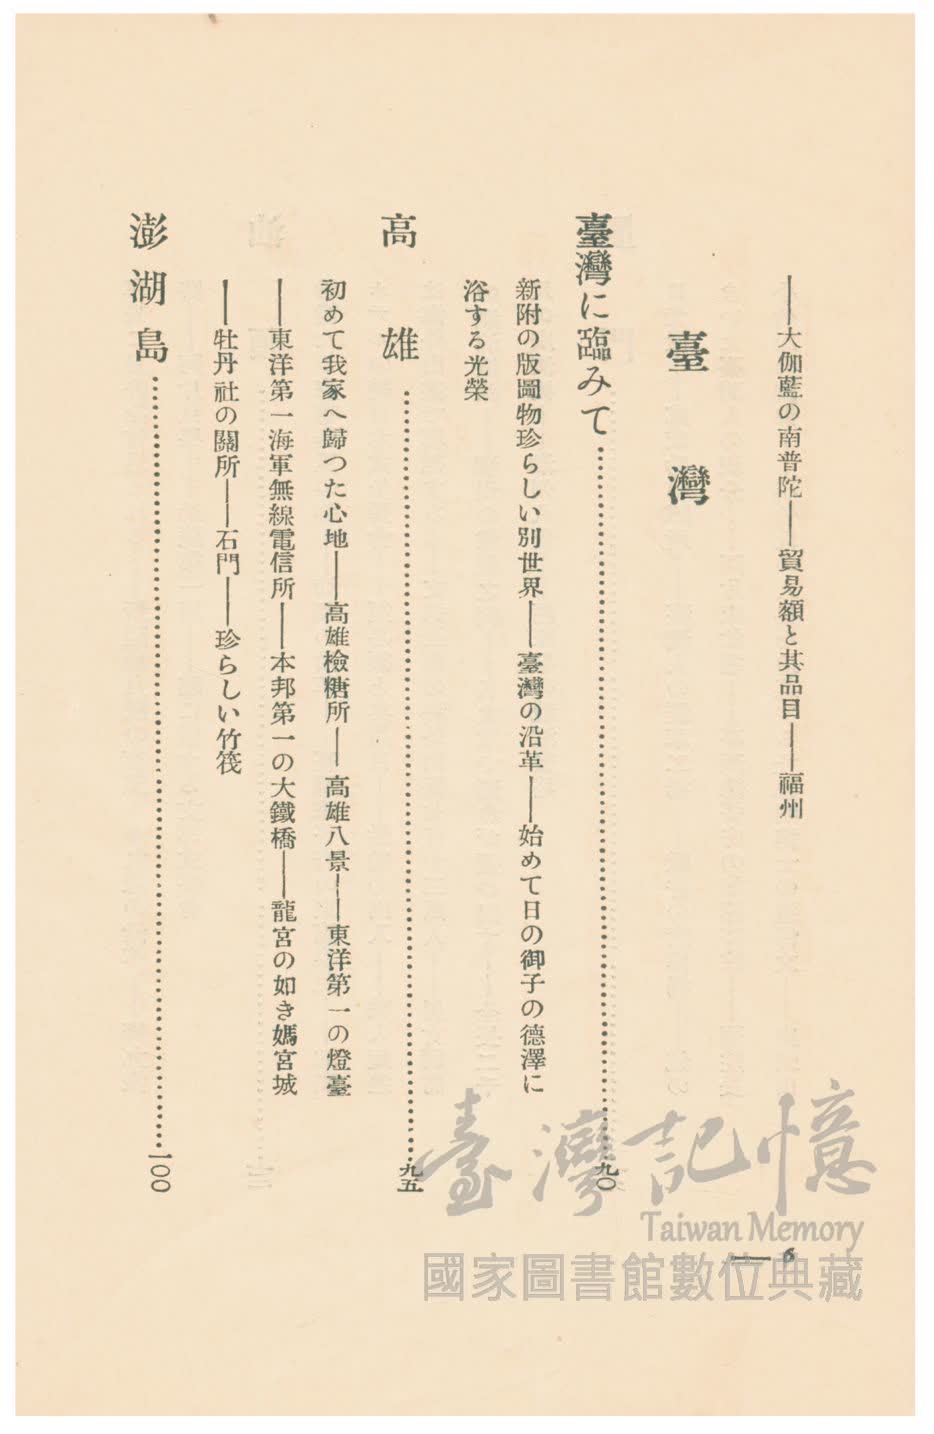 ――大伽藍の南普陀――貿易額と其品目――福州
臺灣
臺灣に臨みて……………………九〇
新附の版圖物珍らしい別世界――臺灣の沿革――始めて日の御子の德澤に
浴する光榮
高雄……………………九五
初めて我家へ歸つた心地――高雄檢糖所――高雄八景――東洋第一の燈臺
――東洋第一海軍無線電信所――本邦第一の大鐵橋――龍宮の如き媽宮城
――牡丹社の關所――石門――珍らしい竹筏
澎湖島……………………一〇〇
― 6
臺灣記憶
Taiwan Memory
國家圖書館數位典藏